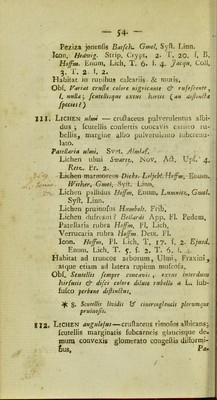 — 54. —
Peziza jenensis Batsch. Gmel. Syst. Linn.
Icon. Hedwig. Strip. Crypt. 2. T. 20. f. B.
Hoffm. Enum. Lich. T. 6. f. 4. Jacqu. Coll.
3. T. 2. f. 2.
Habitat in rupibus calcariis & muris.
Obs. Variat crusta colore nigricante & rufescente,
f. nulla; scutellisque extus hirtis (an distincta
species?)
111. LICHEN ulmi — crustaceus pulverulentus albi-
dus; scutellis confertis concavis carneo ru-
bellis, margine albo pulverulento subcrenu-
lato.
Patellaria ulmi,
Lichen ulmi Swartz. Nov. Act. Ups. 4.
Retz. Fr. 2.
Lichen marmoreus Dicks. Hoffm. Enum.
Wither. Gmel. Syst. Linn.
Lichen pallidus Hoffm. Enum. Gmel.
Syst. Linn.
Lichen pruinosus Humbolt. Frib.
Lichen dufreani? Bellardi App. Fl. Pedem.
Patellaria rubra Hoffm. Fl. Lich.
Verrucaria rubra Hoffm. Deut. Fl.
Icon. Hoffm. Fl. Lich. T. 17. f. 2. Ejusd.
Enum. Lich. T. 5. f. 2. T. 6. f.
Habitat ad truncos arborum, Ulmi, Fraxini,
atque etiam ad latera rupium muscosa.
Obs. Scutellis semper concavis, extus interdum
hirsutis & disci colore dilute rubello a L. sub-
fusco perbene distinctus.
* 8. Scutellis lividis & cinereoglaucis plerumque
pruinosis.
112. LICHEN angulosus — crustaceus rimosus albicans;
scutellis marginatis subcarneis glaucisque de-
mum convexis glomerato congestis difformi-
bus,
Pa-